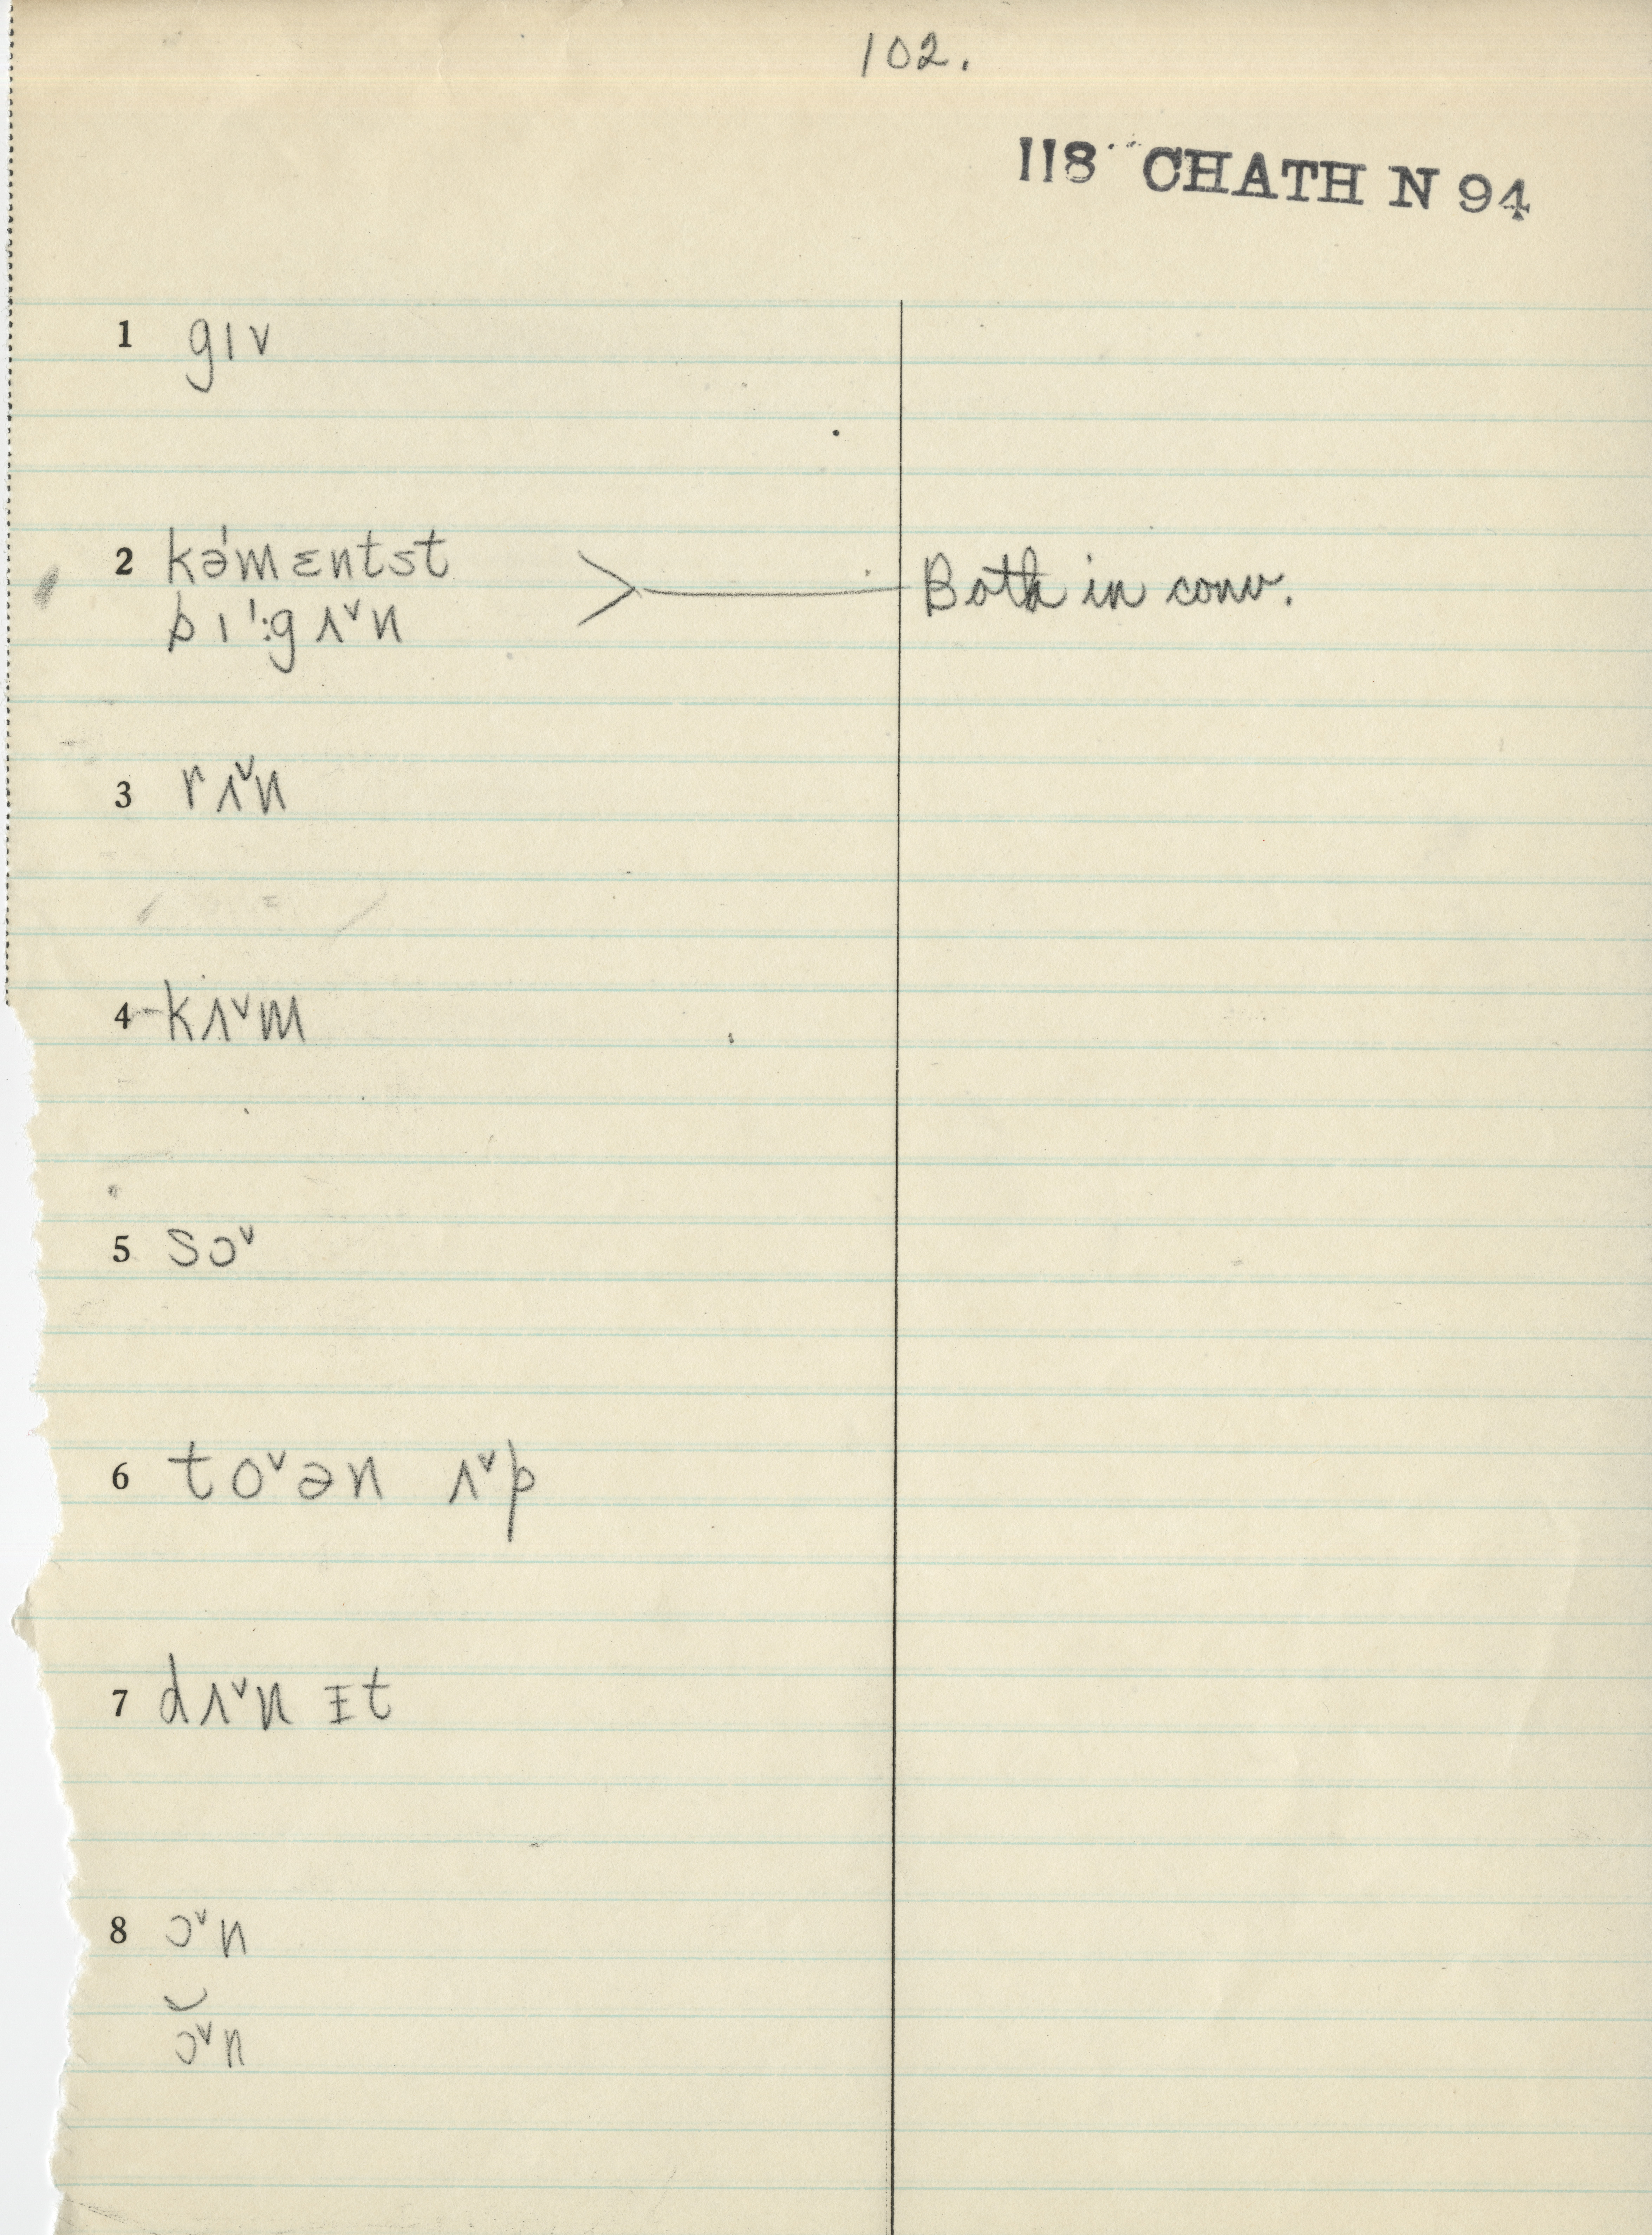 102.
118 CHATH N 94
1 gɪv
2 kə́mɛntst
pɪ':gʌˇn > Both in conv.
3 rʌˇn
4 kʌˇm
5 sɔˇ
6 toˇən ʌˇp
7 dʌˇn ɪt
8 ɔˇn
ɔ̆ˇn